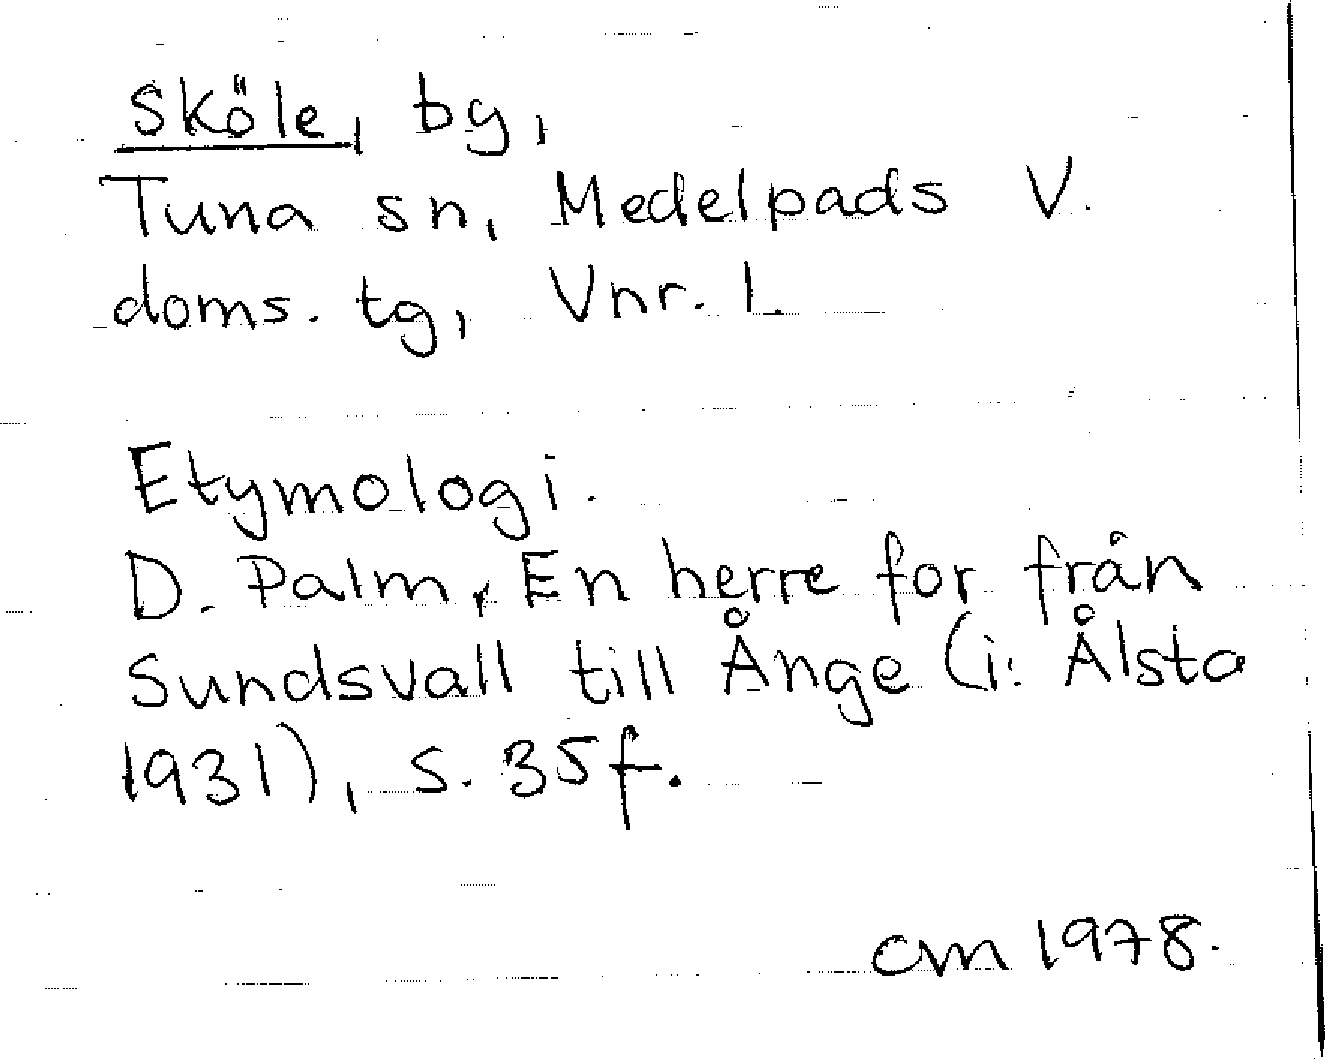 Sköle, by,
Tuna sn, Medelpads V.
doms. tg, Vnr. l.
Etymologi.
D. Palm, En herre for från
Sundsvall till Ånge (i: Ålsta
1931), s. 35f.
cm 1978.